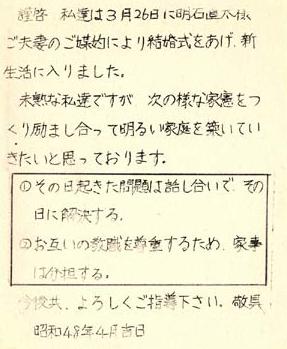 謹啓 私達は3月26日に明石直木様
ご夫妻のご媒妁により結婚式をあげ、新
生活に入りました。
未熟な私達ですが 次の様な家憲をつ
くり励まし合って明るい家庭を築いてい
きたいと思っております。
①その日起きた問題は話し合いで、その
日に解決する。
②お互いの教職を尊重するため、家事
は分担する。
今後共、よろしくご指導下さい。敬具
昭和48年4月吉日